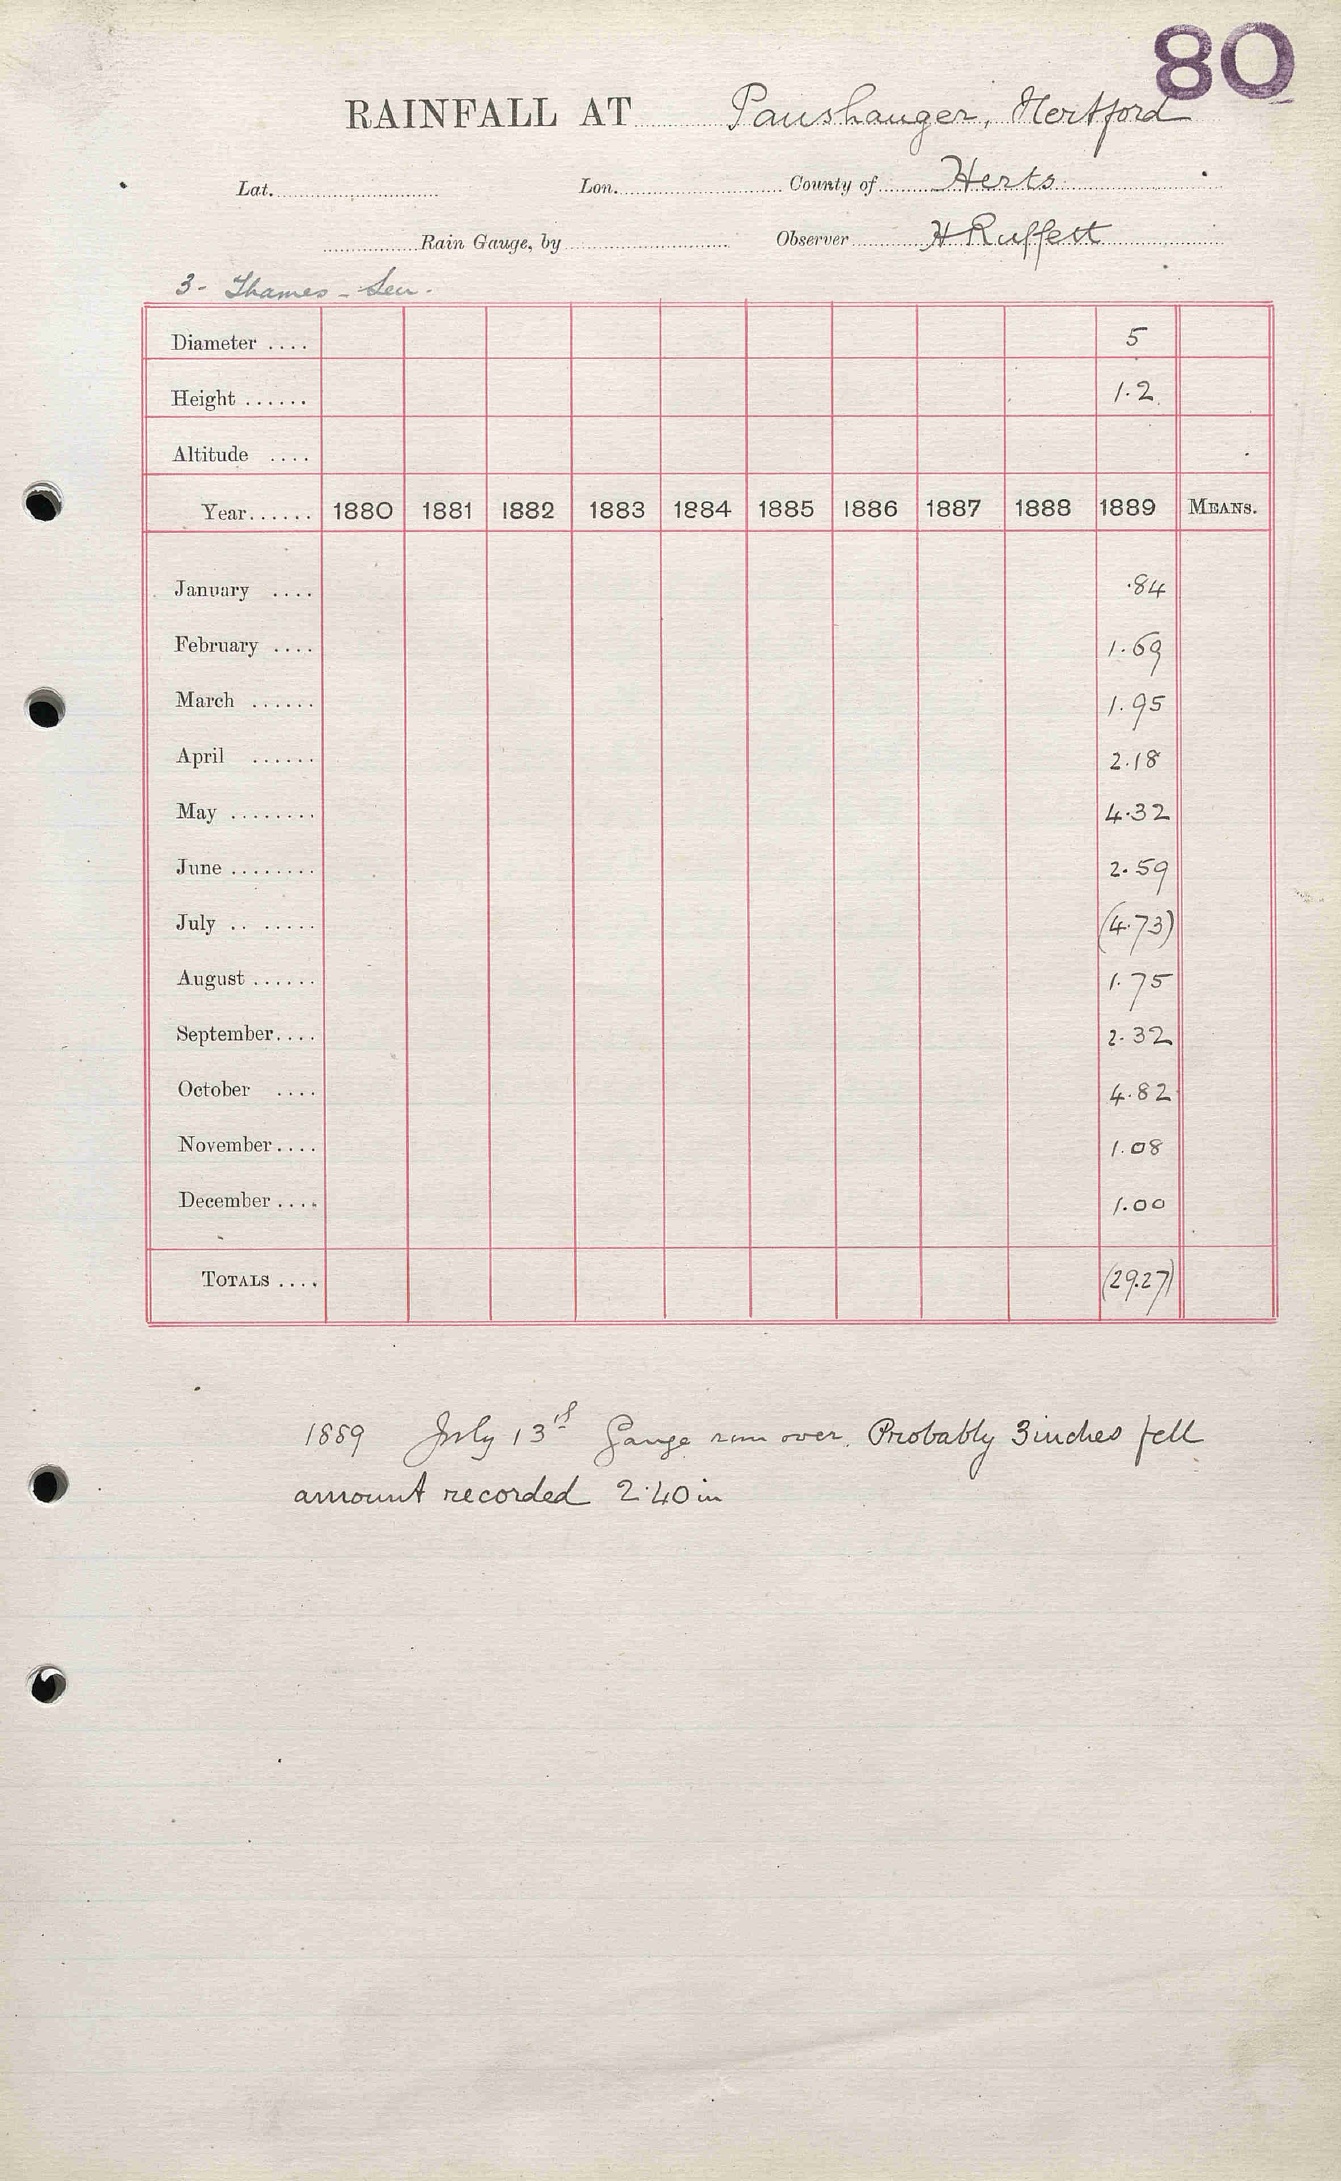 80
RAINFALL AT Panshanger, Hertford
Lat. Lon. County of Herts
Rain Gauge, by Observer H Ruffett
3 - Thames - Lea.
Diameter .... 5
Height ...... 1.2
Altitude ....
Year...... 1880 1881 1882 1883 1884 1885 1886 1887 1888 1889 MEANS.
January .... .84
February .... 1.69
March ...... 1.95
April ...... 2.18
May ........ 4.32
June ........ 2.59
July .. ..... (4.73)
August ...... 1.75
September.... 2.32
October .... 4.82
November.... 1.08
December .... 1.00
TOTALS .... (29.27)
1889 July 13th Gauge run over. Probably 3 inches fell
amount recorded 2.40 in